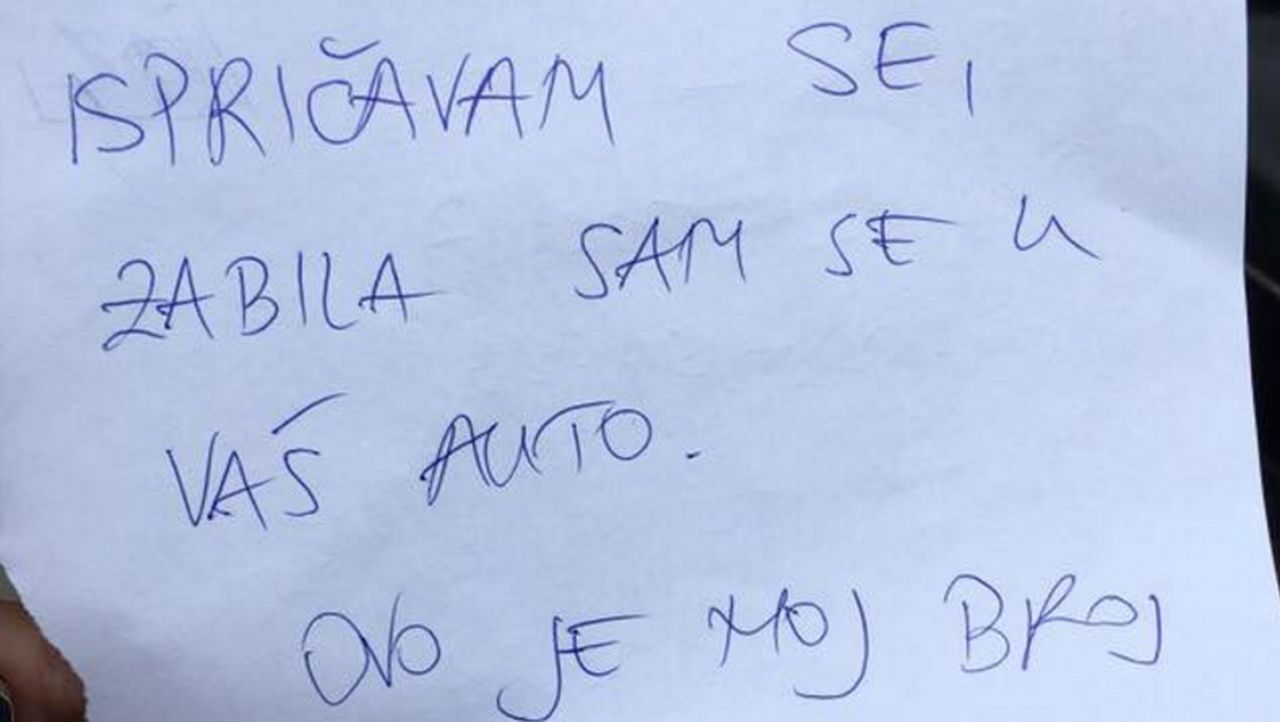 ISPRIČAVAM SE,
ZABILA SAM SE U
VAŠ AUTO.
OVO JE MOJ BROJ